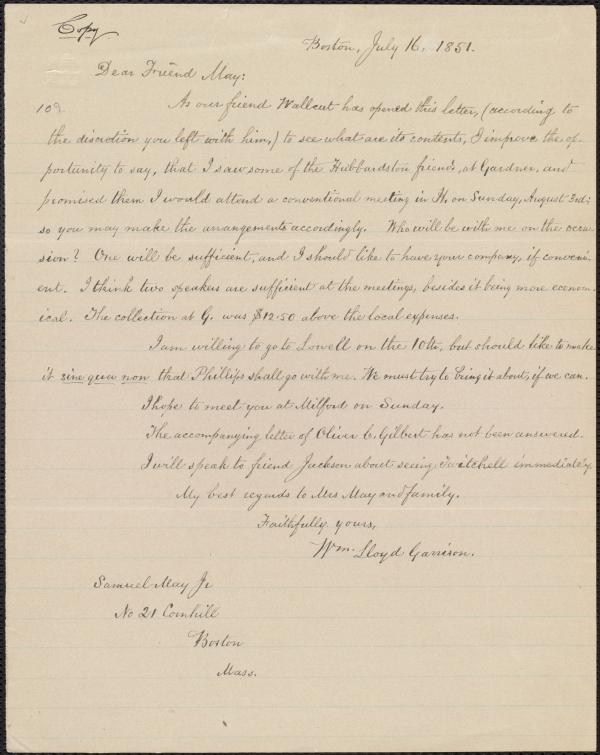 Copy
Boston, July 16, 1851.
Dear Friend May:
109.
As our friend Wallcut has opened this letter, (according to
the discretion you left with him,) to see what are its contents, I improve the op-
portunity to say, that I saw some of the Hubbardston friends, at Gardner, and
promised them I would attend a conventional meeting in H. on Sunday, August 3rd;
so you may make the arrangements accordingly. Who will be with me on the occa-
sion? One will be sufficient, and I should like to have your company, if conveni-
ent. I think two speakers are sufficient at the meetings, besides it being more econom-
ical. The collection at G. was $12.50 above the local expenses.
I am willing to go to Lowell on the 10th, but should like to make
it sine qua non that Phillips shall go with me. We must try to bring it about, if we can.
I hope to meet you at Milford on Sunday.
The accompanying letter of Oliver C. Gilbert has not been answered.
I will speak to friend Jackson about seeing Twitchell immediately.
My best regards to Mrs May and family.
Faithfully yours,
Wm. Lloyd Garrison.
Samuel May Jr
No 21 Cornhill
Boston
Mass.